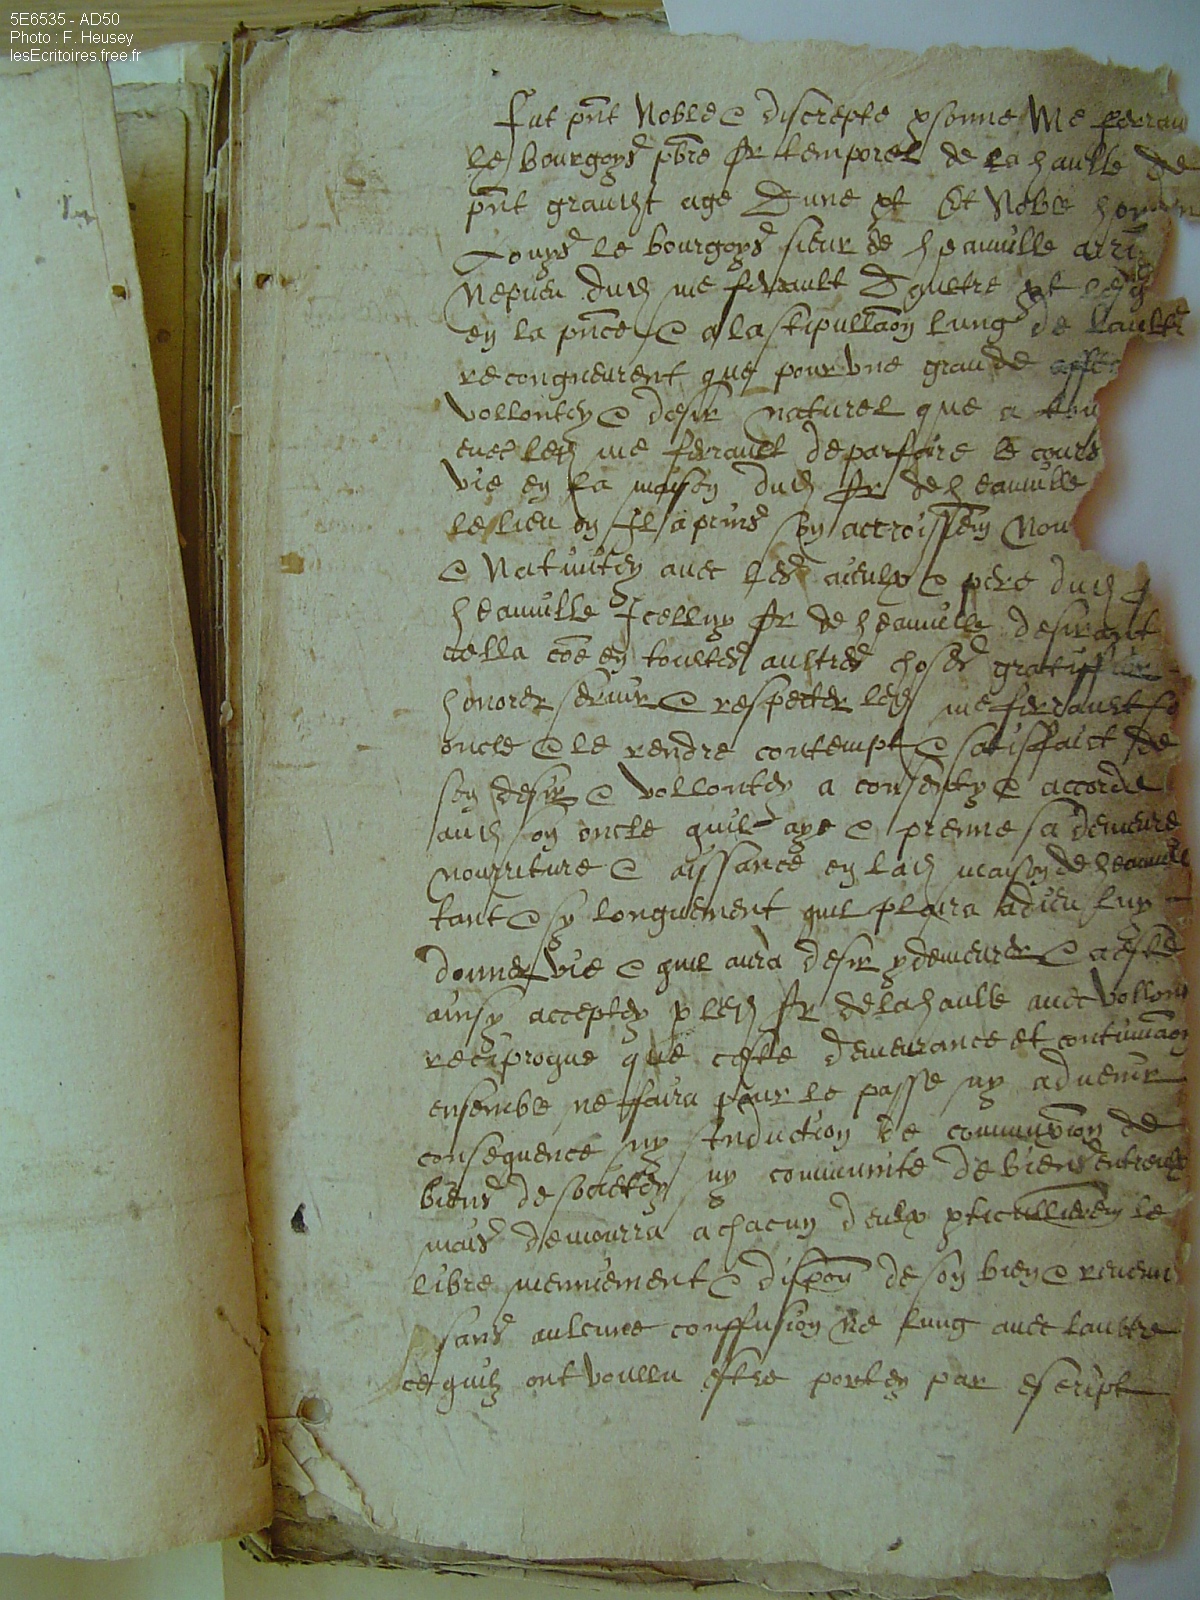 5E6535 - AD50
Photo : F. Heusey
lesEcritoires.free.fr
Fut pnt Noble & discrepte psonne Me ferrau
le bourgoys pbre sr temporel de la haulle de
pnt grauint age Dune pt Et Noble hom
Louys le bourgoys sieur de heauville arri
Nepueu dud me ferrault Daultre pt les
en la pnce & a la stipullaon lung de laultr
recongneurent que pour une grande affec
vollontey & desir naturel que a tou
eues led me ferault de parfaire le cours
vie en la maison dud sr de heauville
le lieu ou Il a prins son accroissem Nou
& Natiuitey auec les aieulx & pere dud s
heauville Icelluy sr de heauville desirant
cella coe en toultes aultres choses gratiffier
honorer seruir & respecter led me ferrault so
oncle & le rendre contempt & satisffaict de
son desir & vollontey a consenty & accorde
aud son oncle quil aye & prenne sa demeure
nourriture & aissance en lad maison de heauuill
tant & sy longuement quil plaira a dieu luy
donner vie & quil aura desir y demeurer & a este
ainsy acceptey p led sr de la haulle auec vollon
reciproque que ceste demeurance et continuaon
ensemble ne faira pour le passe ny aduenir
consequence ny Induction de communion de
biens de societey ny communite de biens entreulx
mais demourra a chacun deulx pticullierem le
libre menniement & dispon de son bien & reuenu
sans aulcune conffusion ne lung auec laultre
ce quilz ont voullu estre portey par escript